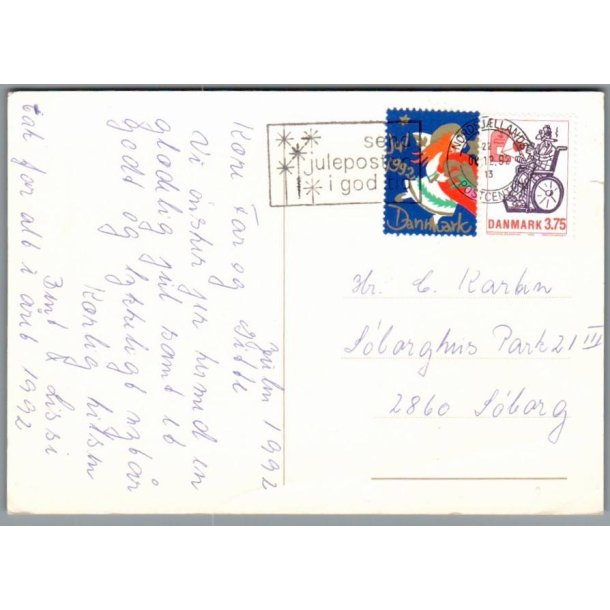 Julen 1992
Kære Far og Gitte
Vi ønsker jer hermed en
glædelig jul samt et
godt og lykkeligt nytår
Kærlig hilsen
Bent & Lissi
Tak for alt i året 1992
send
julepost
i god tid
Jul
1992
Danmark
NORDSJÆLLANDS
POSTCENTER
12.92
13
DANMARK 3.75
Hr. C. Karlsn
Söborghus Park 21 III
2860 Söborg